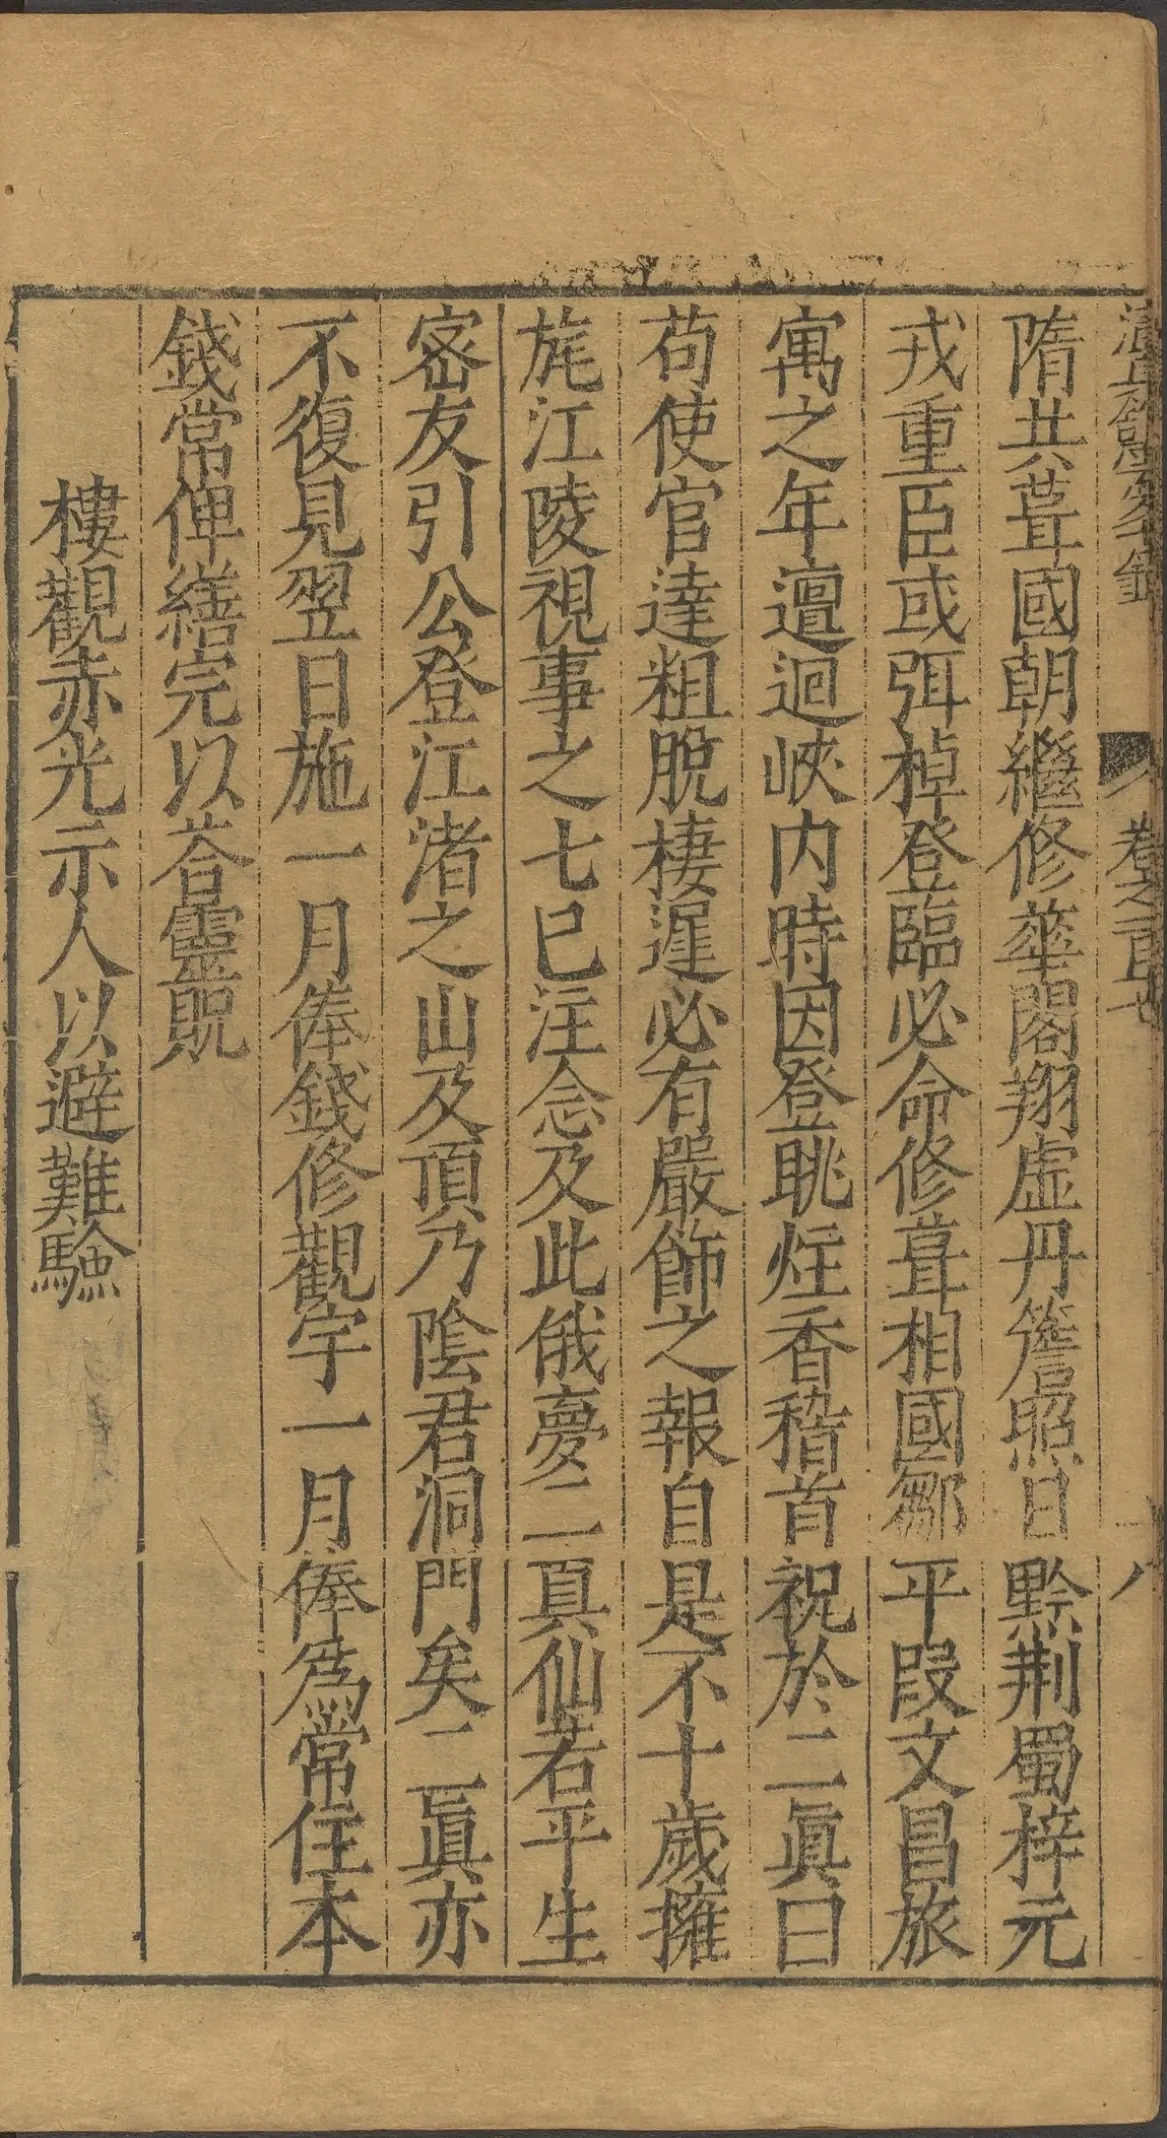 卷之百十七 八
隋共葺國朝繼修華閣翔虛丹簷照日黔荆蜀梓元
戎重臣或弭棹登臨必命修葺相國鄒平段文昌旅
寓之年邅迴峽内時因登眺炷香稽首祝於二眞曰
苟使官達粗脫棲遲必有嚴飾之報自是不十歲擁
旄江陵視事之七巳注念及此俄夣二真仙若平生
宻友引公登江渚之山及頂乃陰君洞門矣二眞亦
不復見翌日施一月俸錢修觀宇一月俸爲常住本
錢常俾繕完以荅靈貺
樓觀赤光示人以避難驗